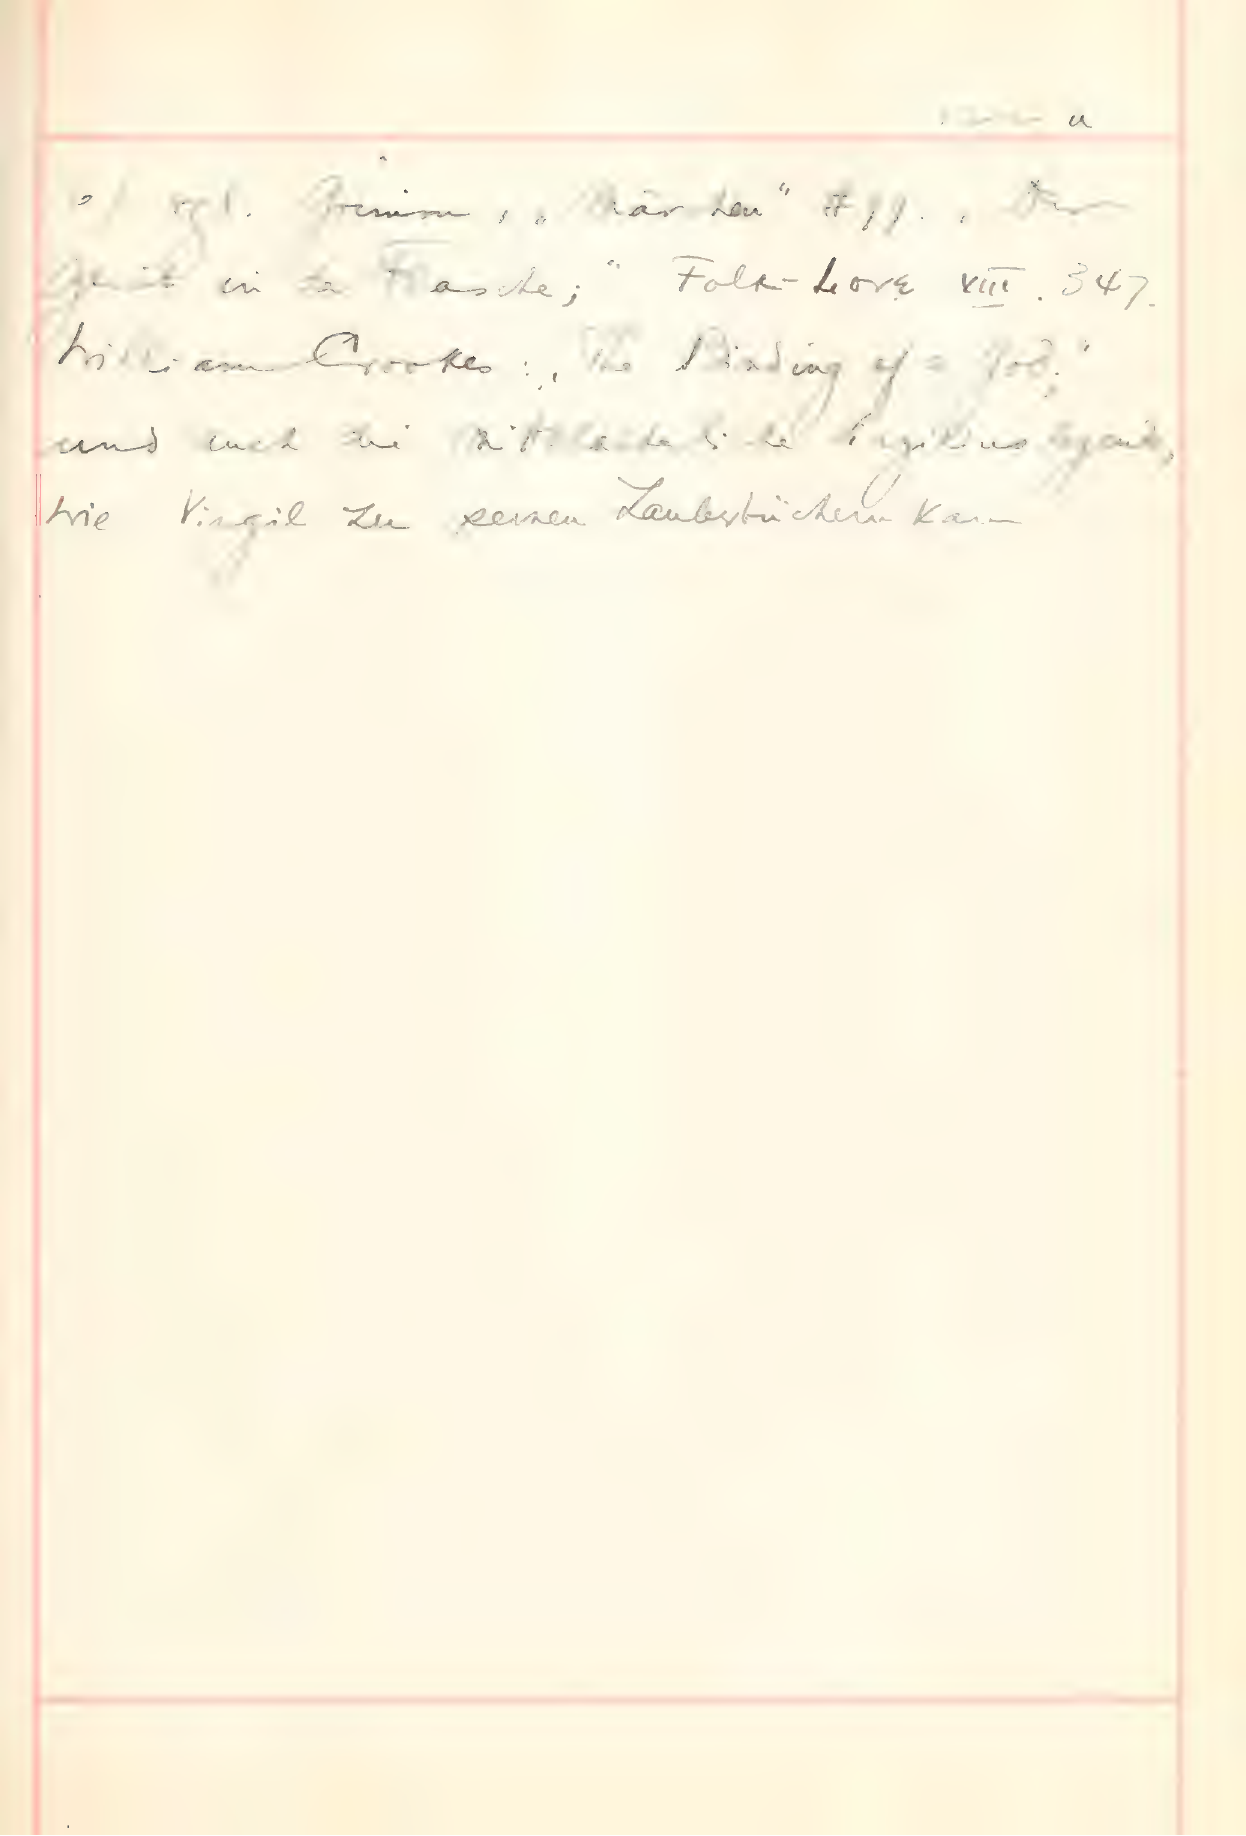 vgl. Grimm, „Märchen“ #99. „Der
Geist in der Flasche;“ Folk-Lore VIII. 347.
William Crookes: „The Binding of a God,“
und auch die mittelalterliche Virgiliuslegende,
wie Virgil zu seinen Zauberbüchern kam